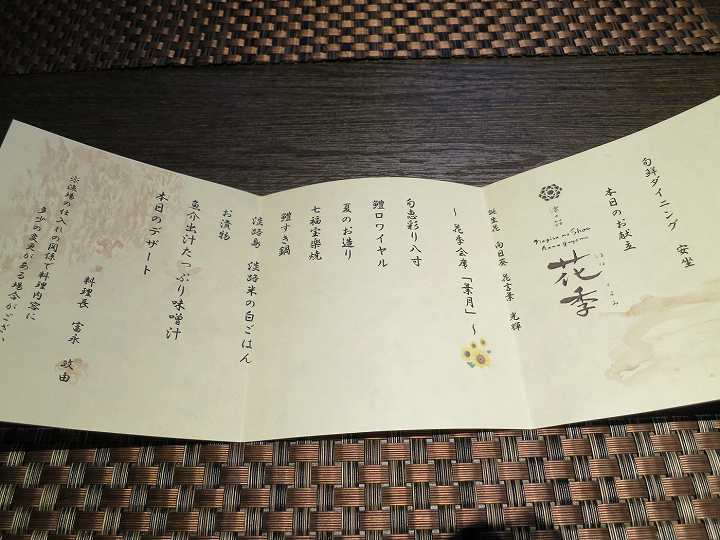 旬鮮ダイニング 安坐
本日のお献立
花季
誕生花 向日葵 花言葉 光輝
～ 花季会席 「葉月」 ～
旬恵彩り八寸
鱧ロワイヤル
夏のお造り
七福宝楽焼
鱧すき鍋
淡路島 淡路米の白ごはん
お漬物
魚介出汁たっぷり味噌汁
本日のデザート
料理長 富永 政由
の仕入れの関係で料理内容に
多少の変更がある場合がござい